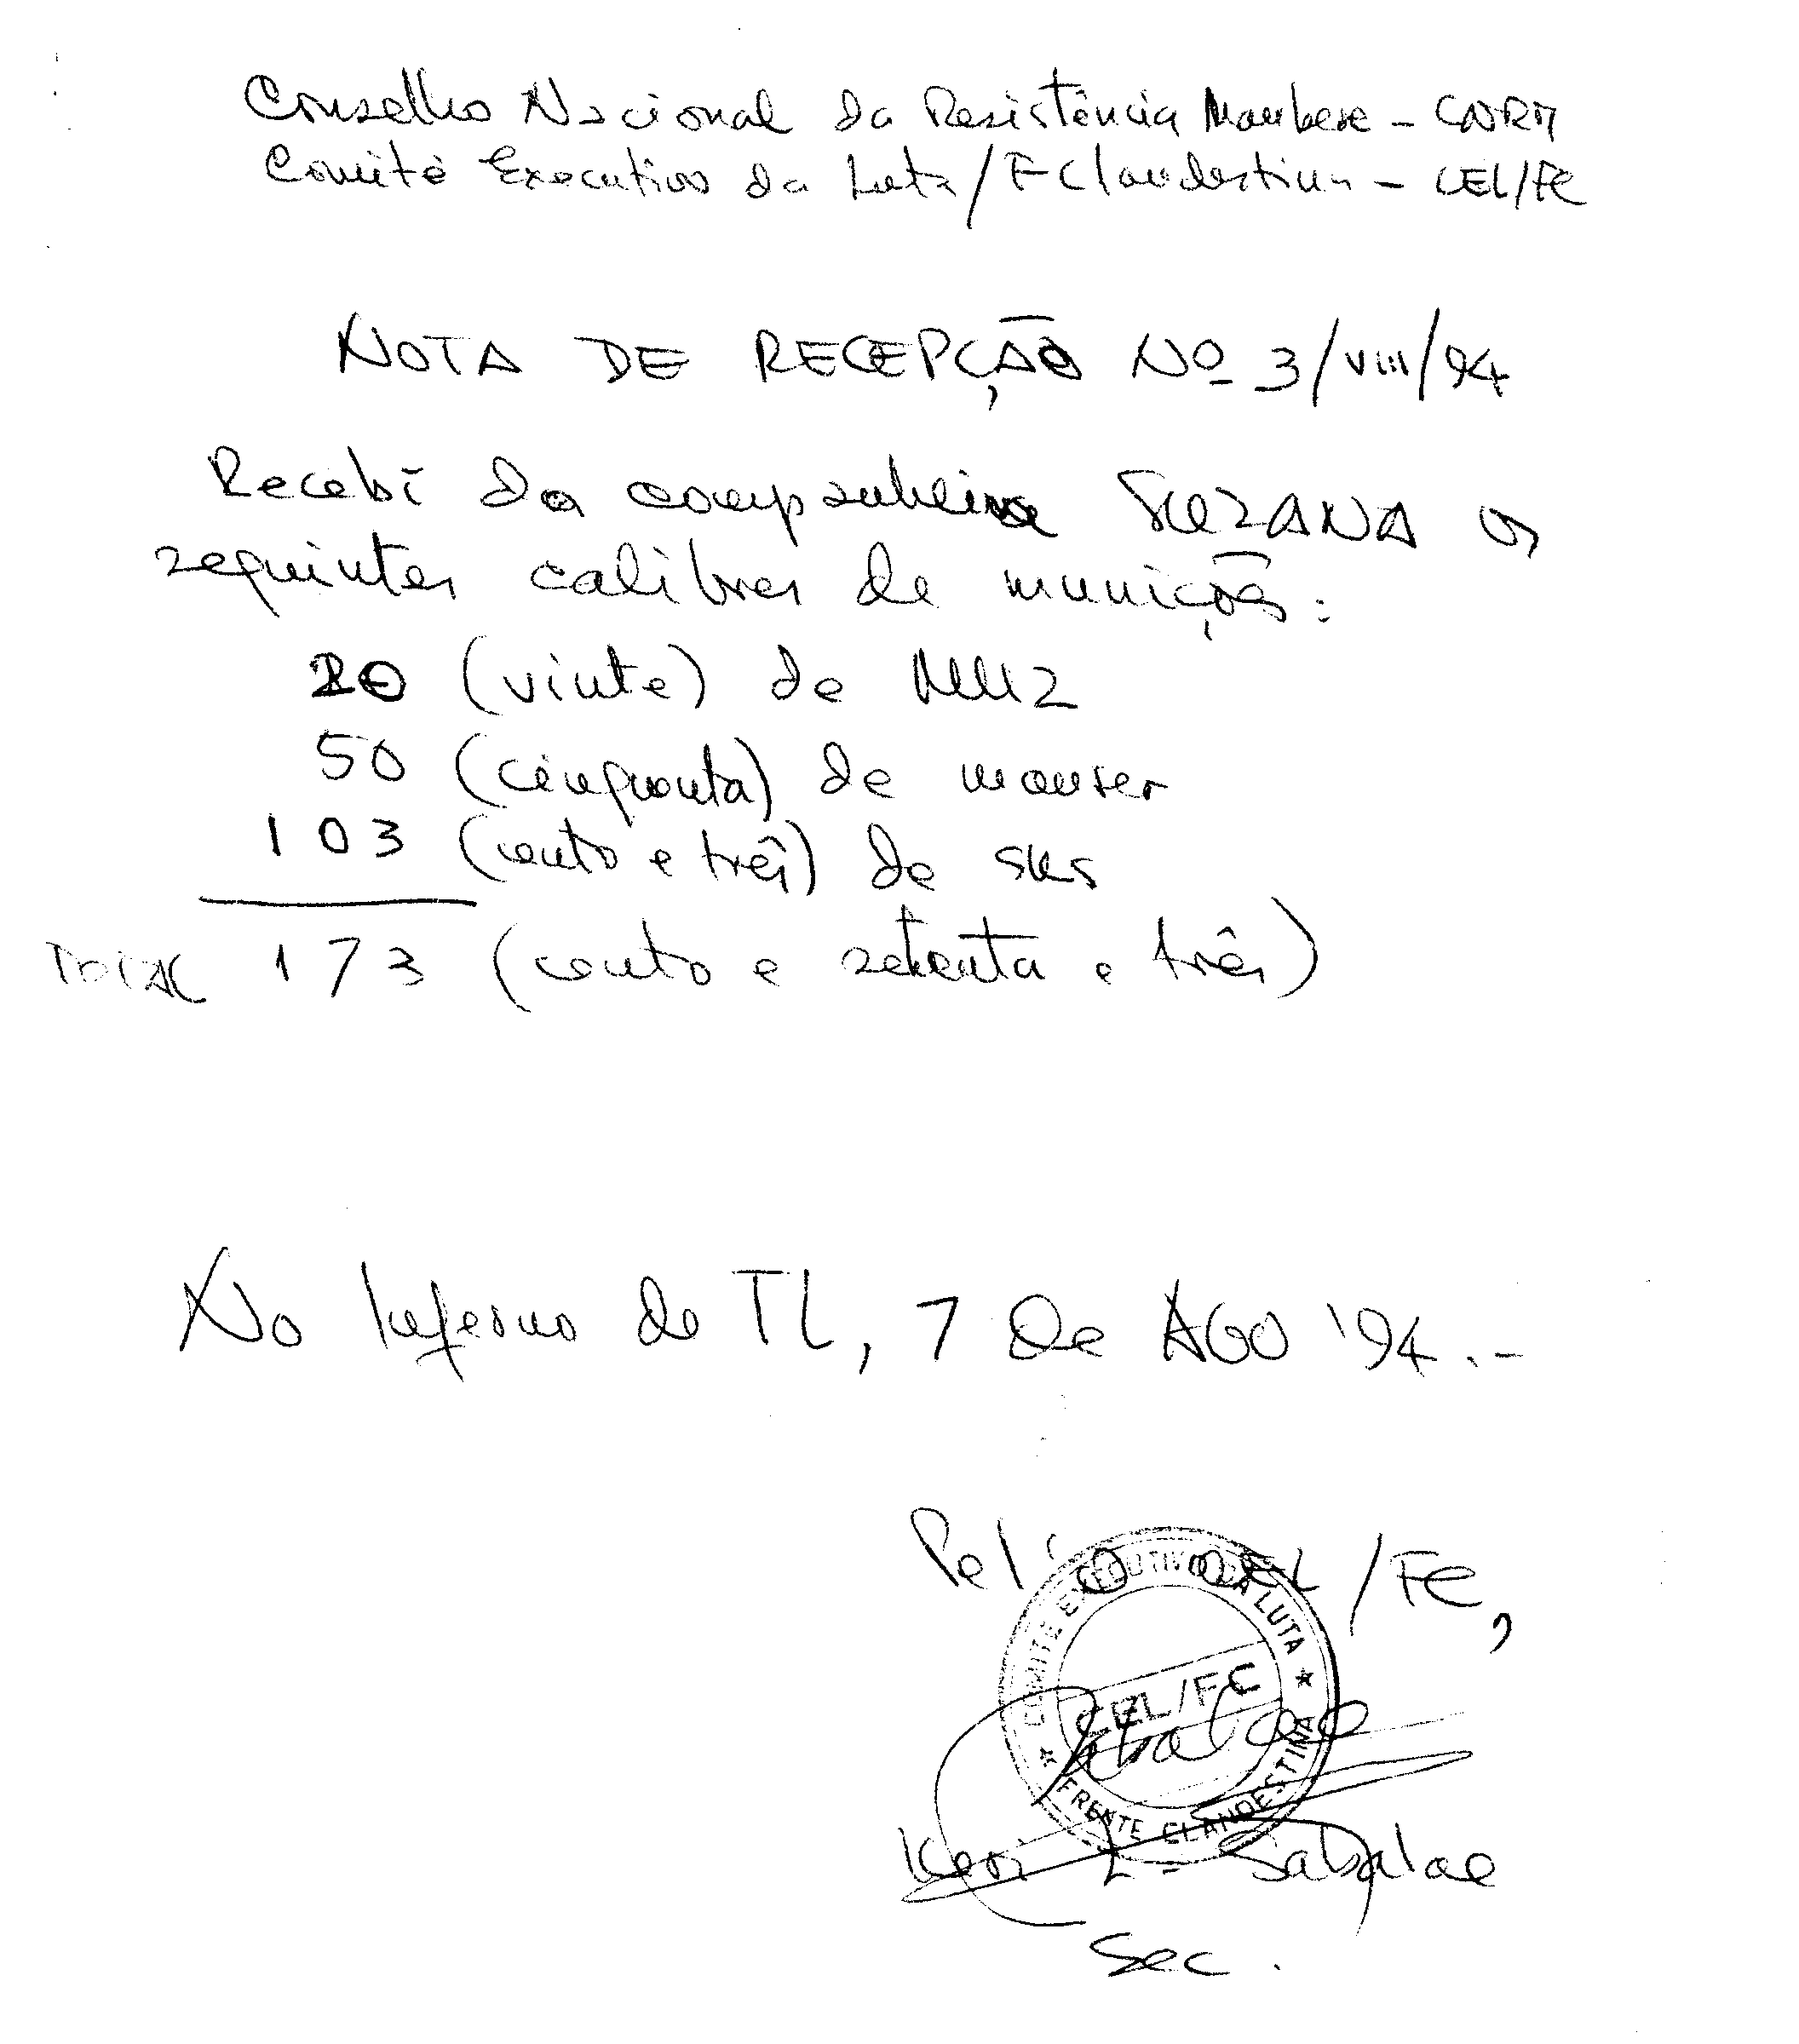 Conselho Nacional da Resistência Maubere - CNRM
Comité Executivo da Luta/F Clandestina - CEL/FC
NOTA DE RECEPÇÃO Nº 3/VIII/94
Recebi da companheira SUZANA os
seguintes calibres de munições:
20 (vinte) de
50 (cinquenta) de mauser
103 (cento e três) de SKS
TOTAL 173 (cento e setenta e três)
No Inferno de TL, 7 de AGO '94.-
Pel'O CEL/FC,
COMITÉ EXECUTIVO DA LUTA
CEL/FC
FRENTE CLANDESTINA
Keri L. Sabalae
Sec.